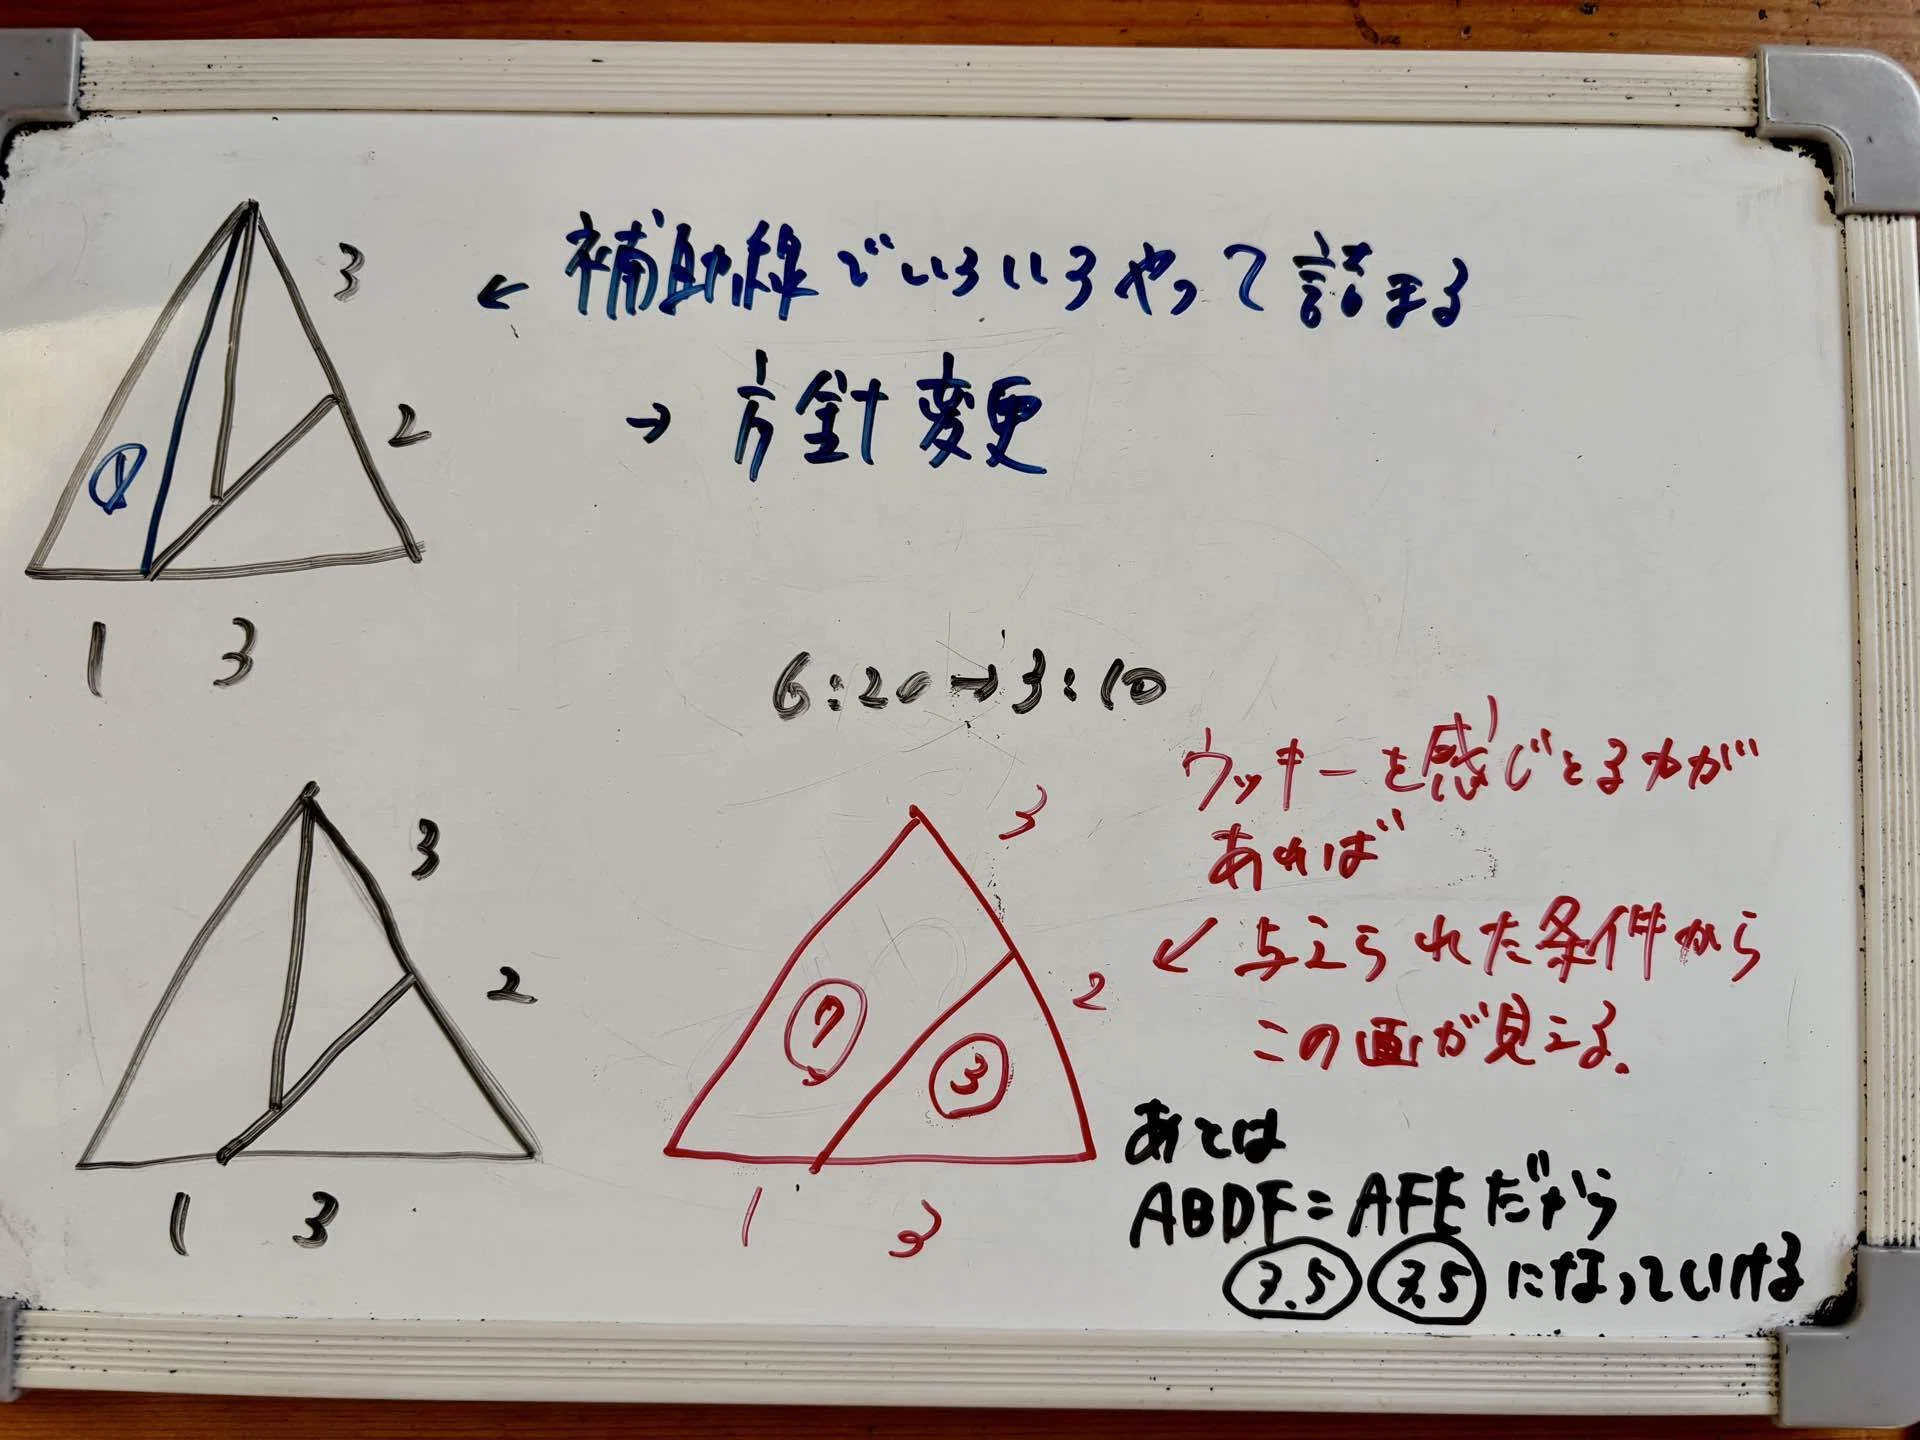 3
← 補助線でいろいろやって詰まる
2
→ 方針変更
①
1 3
6:20→3:10
ウッキーを感じとる力が
あれば
3
3
↙ 与えられた条件から
2
2
この画が見える。
⑦
③
あとは
ABDF=AFEだから
1 3
1 3
3.5 3.5 になっていける